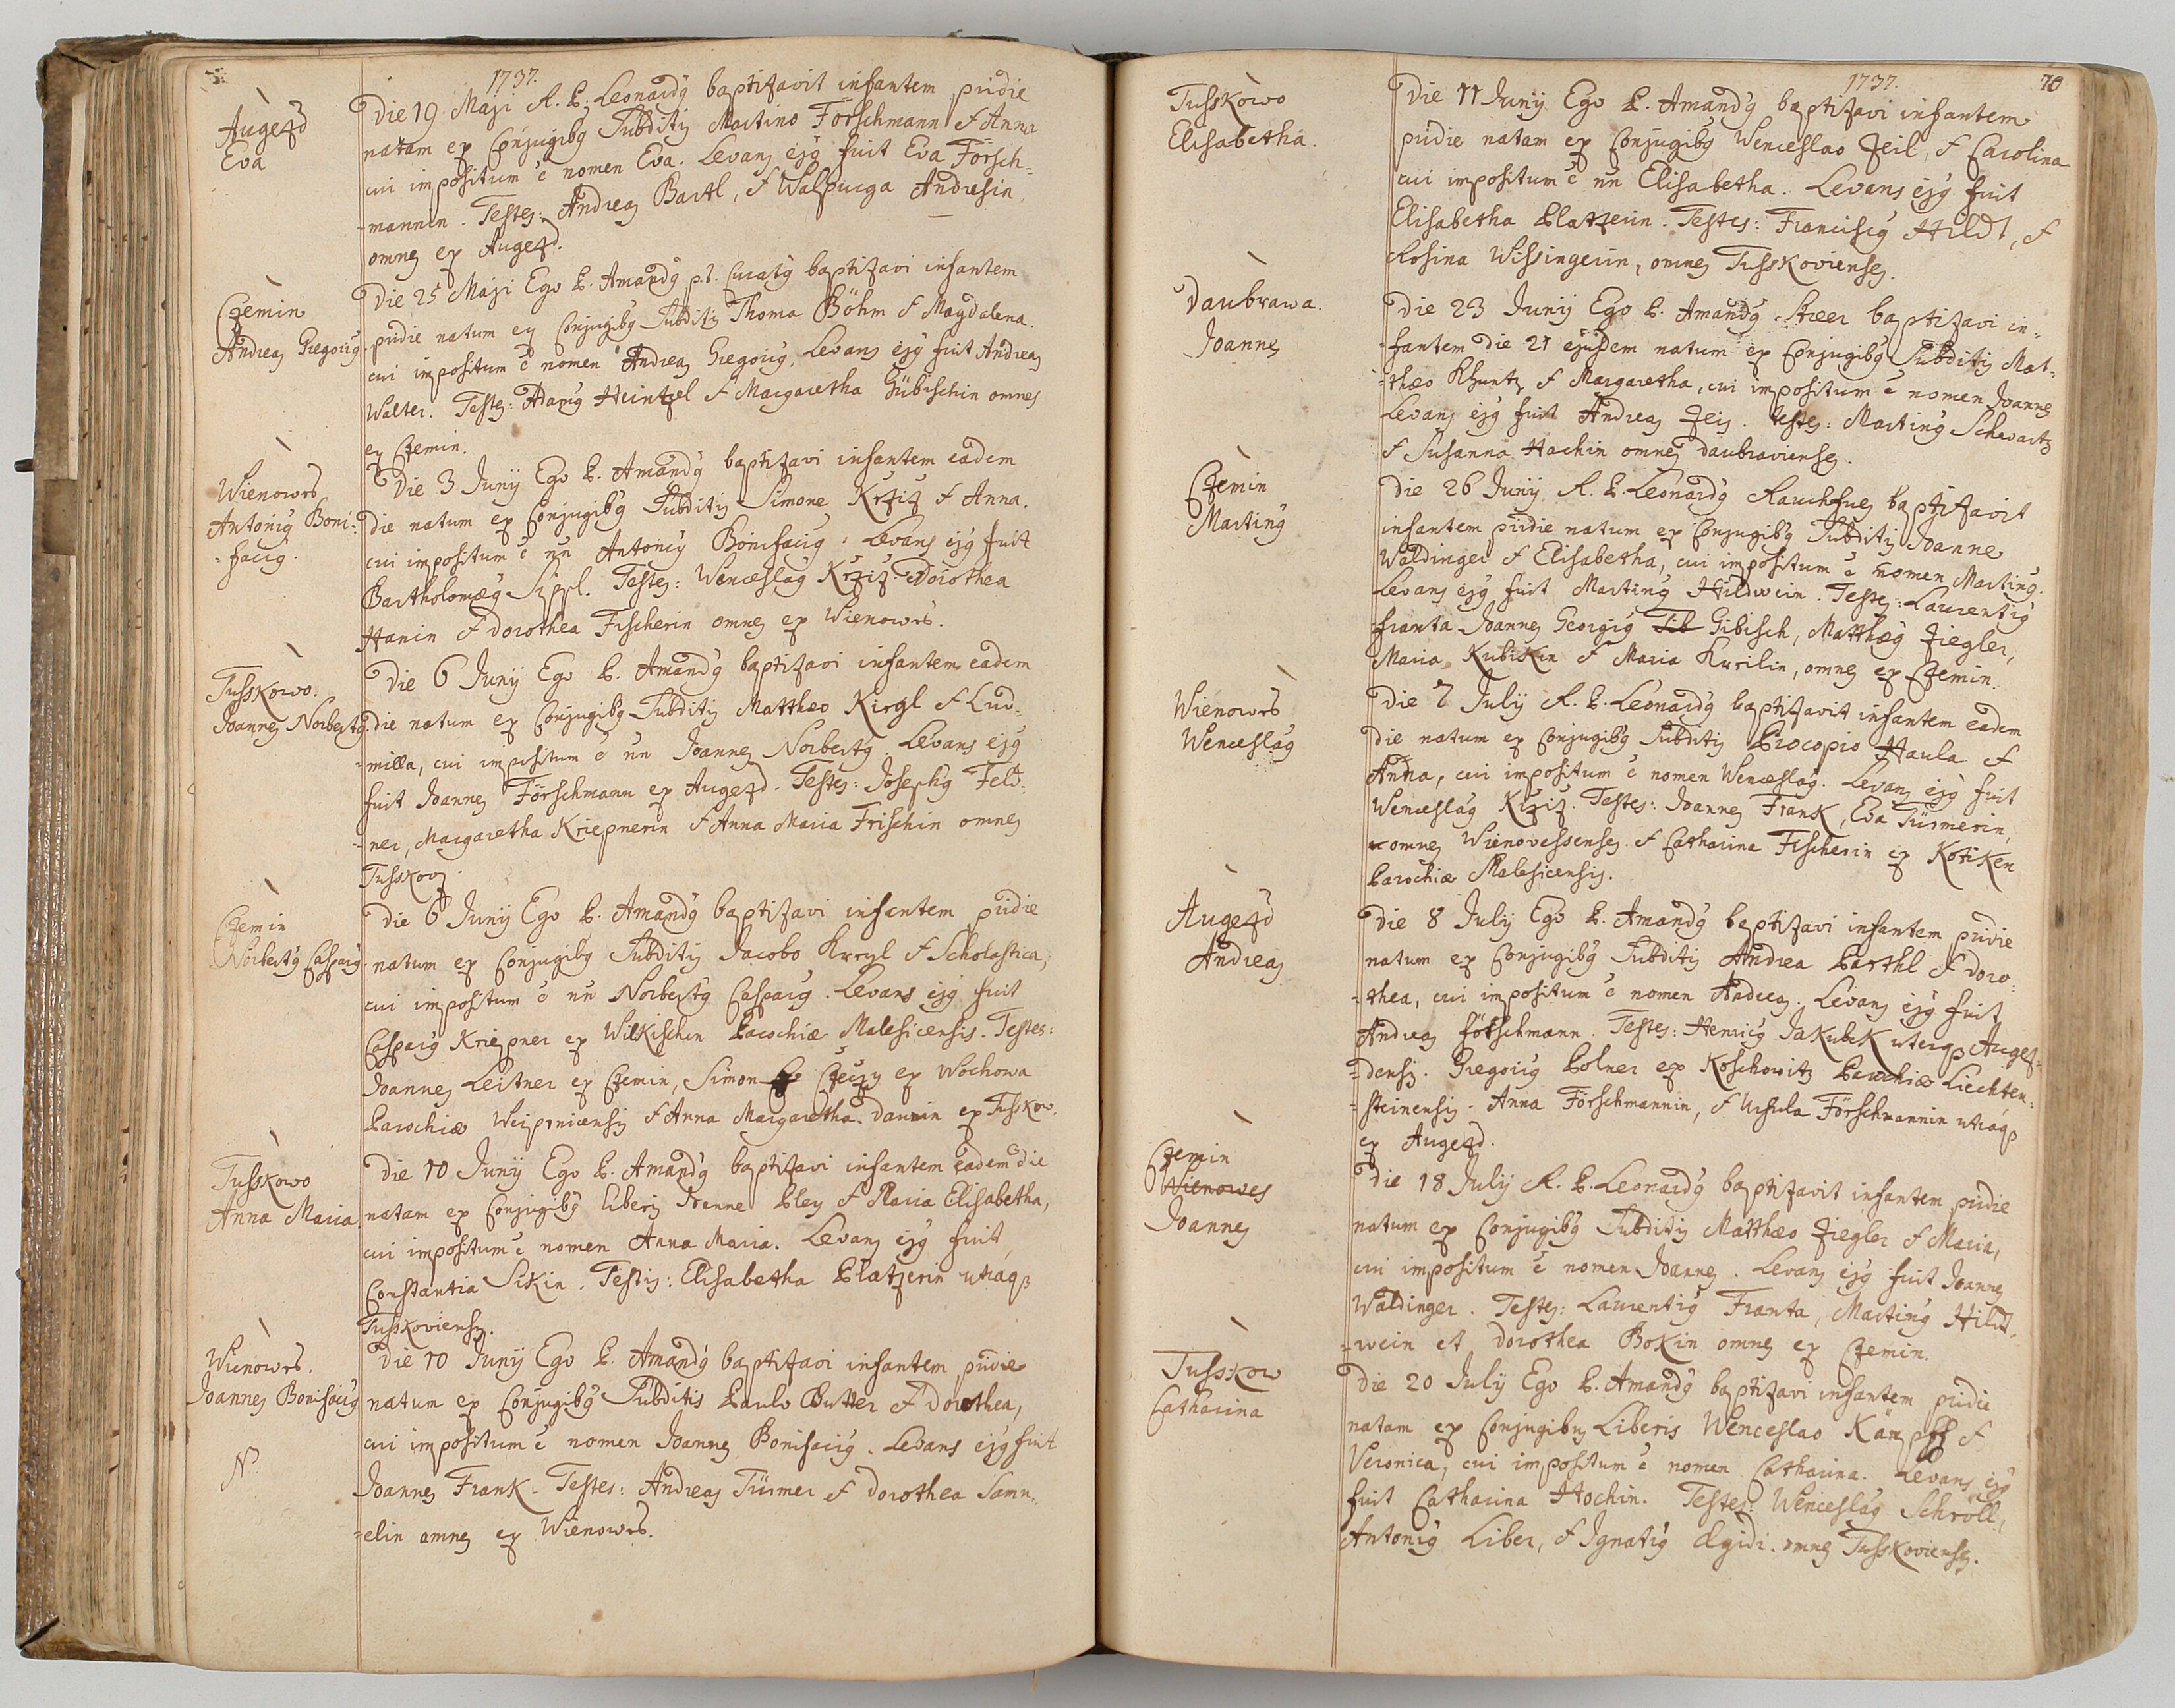 1737.
Augezd
Eva
Die 19 Maji R. P. Leonardq baptizavit infantem pridie
natam ex Conjugibq Subditis Martino Förschmann & Anna
cui impositum ē nomen Eva. Levans ejq fuit Eva Försch=
=mannin. Testes: Andreas Bartl, & Walpurga Andresin
omnes ex Augezd.
Czemin
Andreas Gregoriq
Die 25 Maji Ego P. Amandq p.t. Curatq baptizavi infantem
pridie natum ex Conjugibq Subditis Thoma Böhm & Magdalena.
cui impositum ē nomen Andreas Gregoriq. Levans ejq fuit Andreas
Walter. Testes: Adamq Heintzel & Margaretha Gübischin omnes
ex Czemin.
Wienowrs
Antoniq Boni=
=faciq.
Die 3 Junij Ego P. Amandq baptizavi infantem eadem
die natum ex Conjugibq Subditis Simone Krziz & Anna.
cui impositum ē nn Antoniq Bonifaciq. Levans ejq fuit
Bartholomæq Sippl. Testes: Wenceslaq Krziz Dorothea
Hanin & Dorothea Fischerin omnes ex Wienowrs.
Tusskowo.
Joannes Norbertq.
Die 6 Junij Ego P. Amandq baptizavi infantem eadem
die natum ex Conjugibq Subditis Matthæo Kirgl & Lud=
=milla, cui impositum ē nn Joannes Norbertq. Levans ejq
fuit Joannes Förschmann ex Augezd. Testes: Josephq Feld=
=ner, Margaretha Kriepnerin & Anna Maria Frischin omnes
Tusskov.
Czemin
Norbertq Casparq.
Die 6 Junij Ego P. Amandq baptizavi infantem pridie
natum ex Conjugibq Subditis Jacobo Kryl & Scholastica,
cui impositum ē nn Norbertq Casparq. Levans ejq fuit
Casparq Kriepner ex Wilkischen Parochiæ Malesicensis. Testes:
Joannes Leitner ex Czemin, Simon Czeczy ex Wochowa
Parochiæ Weiprnicensis & Anna Margaretha Dannin ex Tusskow.
Tusskowo
Anna Maria.
Die 10 Junij Ego P. Amandq baptizavi infantem eadem die
natam ex Conjugibq liberis Joanne Pley & Maria Elisabetha,
cui impositum ē nomen Anna Maria. Levans ejq fuit
Constantia Sikin. Testis: Elisabetha Platzerin utraqꝫ
Tusskoviensis.
Wienowrs.
Joannes Bonifaciq
N
Die 10 Junij Ego P. Amandq baptizavi infantem pridie
natum ex Conjugibq Subditis Paulo Butter & Dorothea,
cui impositum ē nomen Joannes Bonifaciq. Levans ejq fuit
Joannes Frank. Testes: Andreas Türmer & Dorothea Samn=
=elin omnes ex Wienowrs.
1737.
70
Tusskowo
Elisabetha.
Die 11 Junij Ego P. Amandq baptizavi infantem
pridie natam ex Conjugibq Wenceslao Zeil, & Carolina
cui impositum ē nn Elisabetha. Levans ejq fuit
Elisabetha Platzerin. Testes: Franciscq Hildt, &
Rosina Wissingerin, omnes Tusskovienses.
Daubrawa.
Joannes
Die 23 Junij Ego P. Amandq Steer baptizavi in=
=fantem die 21 ejusdem natum ex Conjugibq Subditis Mat=
=thæo Khuntz & Margaretha, cui impositum ē nomen Joannes
Levans ejq fuit Andreas Zeis. Testes: Martinq Schwartz
& Susanna Hachin omnes Daubravienses.
Czemin
Martinq
Die 26 Junij R. P. Leonardq Rauchfues baptizavit
infantem pridie natum ex Conjugibq Subditis Joanne
Waldinger & Elisabetha, cui impositum ē nomen Martinq.
Levans ejq fuit Martinq Hildwein. Testes: Laurentiq
Franta Joannes Georgiq Gibisch, Matthæq Ziegler,
Maria Kubiskin & Maria Kurilin, omnes ex Czemin.
Wienowrs
Wenceslaq
Die 7 Julij R. P. Leonardq baptizavit infantem eadem
die natum ex Conjugibq Subditis Procopio Haula &
Anna, cui impositum ē nomen Wenceslaq. Levans ejq fuit
Wenceslaq Krziz. Testes: Joannes Frank, Eva Türmerin,
omnes Wienovessenses. & Catharina Fischerin ex Kotiken
Parochiæ Malesicensis.
Augezd
Andreas
Die 8 Julij Ego P. Amandq baptizavi infantem pridie
natum ex Conjugibq Subditis Andrea Parthl & Doro=
=thea, cui impositum ē nomen Andreas. Levans ejq fuit
Andreas Förschmann. Testes: Henricq Jakubek uterqꝫ Augez=
=densis. Gregoriq Polner ex Koschowitz Parochiæ Liechten=
=steinensis. Anna Förschmannin, & Ursula Förschmannin utraqꝫ
ex Augezd.
Czemin
Wienowes
Joannes
Die 18 Julij R. P. Leonardq baptizavit infantem pridie
natum ex Conjugibq Subditis Matthæo Ziegler & Maria,
cui impositum ē nomen Joannes. Levans ejq fuit Joannes
Waldinger. Testes: Laurentiq Franta, Martinq Hild=
=wein et Dorothea Bokin omnes ex Czemin.
Tusskow
Catharina
Die 20 Julij Ego P. Amandq baptizavi infantem pridie
natam ex Conjugibus Liberis Wenceslao Kämpff &
Veronica, cui impositum ē nomen Catharina. Levans ejq
fuit Catharina Hochin. Testes: Wenceslaq Schröll,
Antoniq Liber, & Ignatiq Ægidi. omnes Tusskovienses.